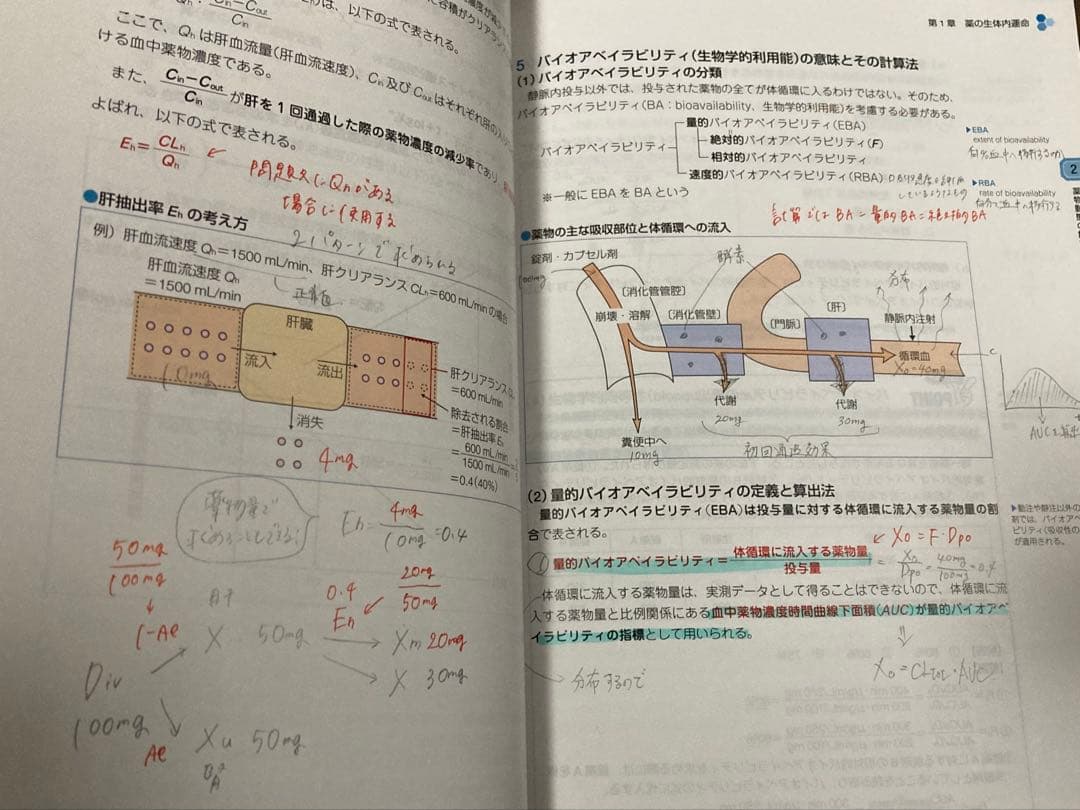 Cin−Cout
Cin
は、以下の式で表される。
ここで、Qhは肝血流量(肝血流速度)、Cin及びCoutはそれぞれ肝の入り
ける血中薬物濃度である。
また、Cin−Cout/Cinが肝を1回通過した際の薬物濃度の減少率であり、
よばれ、以下の式で表される。
Eh=CLh/Qh ← 問題文にQhがある
場合に使用する
●肝抽出率Ehの考え方
2パターンで求められる
例) 肝血流速度Qh=1500 mL/min、肝クリアランスCLh=600 mL/minの場合
肝血流速度Qh
=1500 mL/min
正常値
肝臓
流入
流出
10mg
肝クリアランスCL
=600 mL/min
除去される割合
=肝抽出率Eh
=600 mL/min
1500 mL/min
=0.4(40%)
消失
4mg
薬物量で
求めることもできる!
Eh=4mg/10mg=0.4
50mg
100mg
20mg
50mg
0.4
Eh
1-Ae
肝
X 50mg
Xm 20mg
X 30mg
Div
100mg
Ae
Xu 50mg
第1章 薬の生体内運命
5 バイオアベイラビリティ(生物学的利用能)の意味とその計算法
(1) バイオアベイラビリティの分類
静脈内投与以外では、投与された薬物の全てが体循環に入るわけではない。そのため、
バイオアベイラビリティ(BA:bioavailability、生物学的利用能)を考慮する必要がある。
バイオアベイラビリティ
量的バイオアベイラビリティ(EBA)
絶対的バイオアベイラビリティ(F)
相対的バイオアベイラビリティ
速度的バイオアベイラビリティ(RBA)
※一般にEBAをBAという
▶EBA
extent of bioavailability
▶RBA
rate of bioavailability
2
計算ではBA=量的BA=絶対的BA
●薬物の主な吸収部位と体循環への流入
錠剤・カプセル剤
100mg
酵素
分布
〔消化管管腔〕
崩壊・溶解
〔消化管壁〕
〔門脈〕
〔肝〕
静脈内注射
循環血
X0=40mg
C
代謝
20mg
代謝
30mg
糞便中へ
10mg
初回通過効果
AUCを算出
(2) 量的バイオアベイラビリティの定義と算出法
量的バイオアベイラビリティ(EBA)は投与量に対する体循環に流入する薬物量の割
合で表される。
← X0=F・Dpo
① 量的バイオアベイラビリティ=体循環に流入する薬物量/投与量 =X0/Dpo=40mg/100mg=0.4
体循環に流入する薬物量は、実測データとして得ることはできないので、体循環に流
入する薬物量と比例関係にある血中薬物濃度時間曲線下面積(AUC)が量的バイオアベ
イラビリティの指標として用いられる。
分布するので
X0=CLtot・AUC
▶動注や静注以外の
剤では、バイオアベ
ビリティ(吸収性の
が適用される。